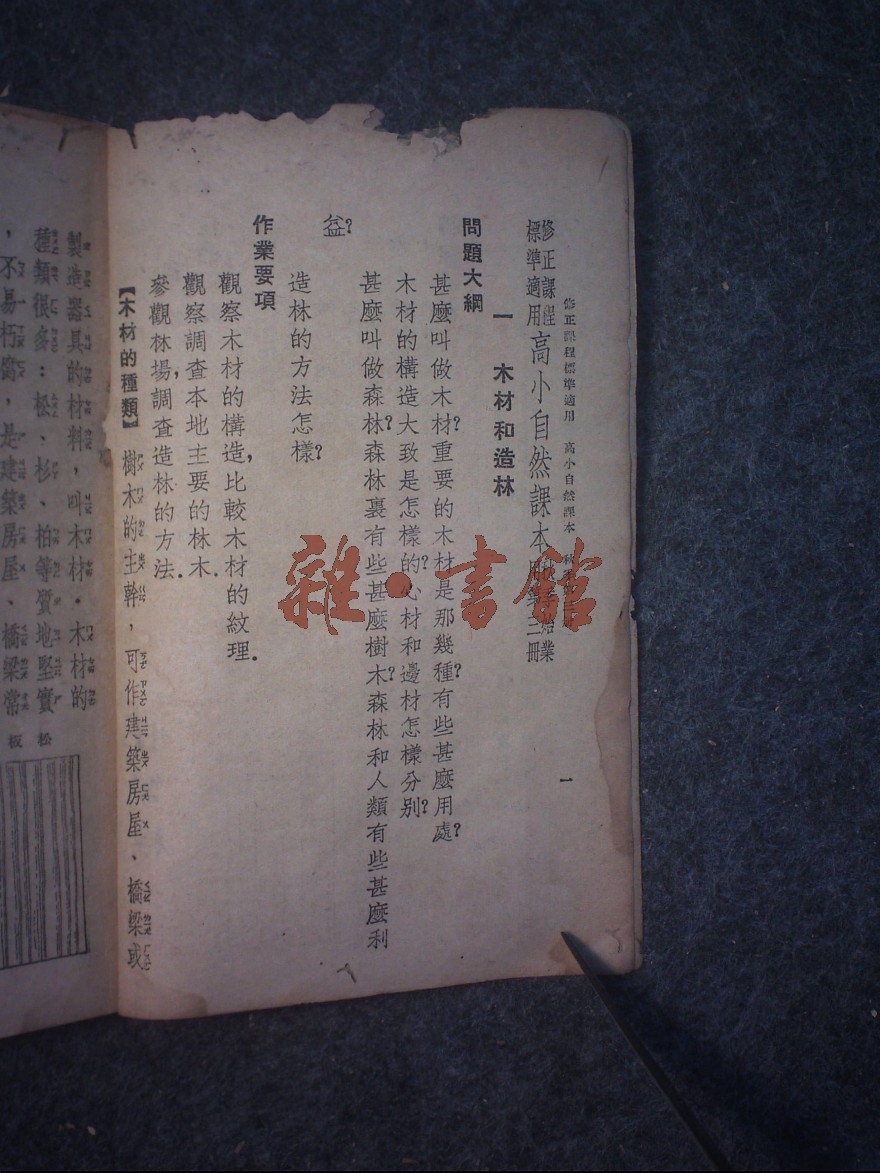 修正課程標準適用 高小自然課本 秋 第三冊 一
修正課程標準適用高小自然課本 始業 第三冊
一 木材和造林
問題大綱
甚麼叫做木材?重要的木材是那幾種?有些甚麼用處?
木材的構造大致是怎樣的?心材和邊材怎樣分別?
甚麼叫做森林?森林裏有些甚麼樹木?森林和人類有些甚麼利
益?
造林的方法怎樣?
作業要項
觀察木材的構造,比較木材的紋理.
觀察調查本地主要的林木.
參觀林場,調查造林的方法.
【木材的種類】樹木的主幹,可作建築房屋、橋梁或
製造器具的材料,叫木材.木材的
種類很多:松、杉、柏等質地堅實
,不易朽腐,是建築房屋、橋梁常
松
板
雜·書館